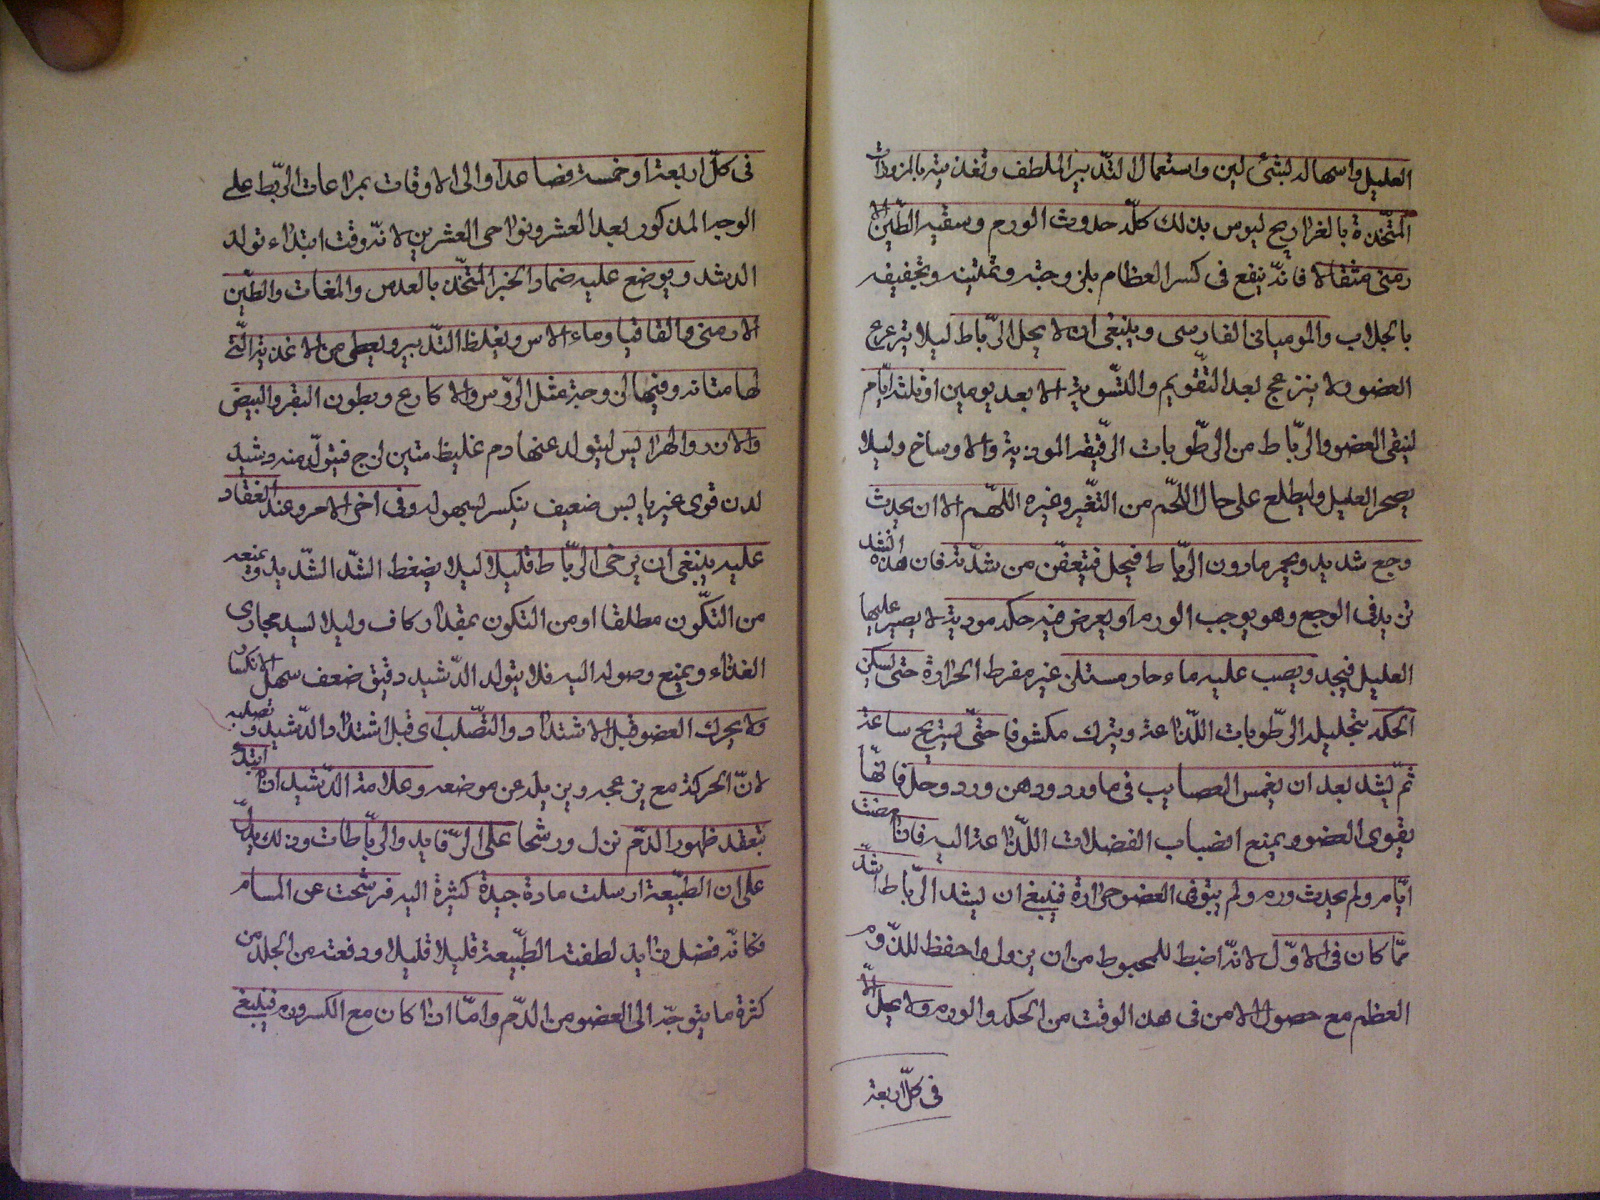 العليل واسهاله بشئ لين واستعمال التدبير الملطف وتغذيته بالمزورات
المتخذة بالفراريج ليومن بذلك كله حدوث الورم وسقيه الطين الا
رمنى مثقالا فانه ينفع فى كسر العظام بلزوجته وتمتينه وتجفيفه
بالجلاب والموميائى الفارسى وينبغى ان لا يحل الرباط ليلا يترعرع
العضو ولا ينزعج بعد التقويم والتسوية الا بعد يومين او ثلثة ايام
لينقى العضو والرباط من الرطوبات الرقيقة الموذية والاوساخ وليلا
يضجر العليل وليطلع على حال اللحم من التغير وغيره اللهم الا ان يحدث
وجع شديد ويحمر مادون الرباط فيحل فيتعفن من شدته فان هذه الشد
تزيد فى الوجع وهو يوجب الورم او يعرض فيه حكة موذية لا يصبر عليها
العليل فيحد ويصب عليه ماء حار مستلذ غير مفرط الحرارة حتى يسكن
الحكة بتحليله الرطوبات اللذاعة ويترك مكشوفا حتى يستريح ساعة
ثم يشد بعد ان يغمس العصايب فى ماورد ودهن ورد وخل فانها
يقوى العضو ويمنع انصباب الفضلات اللذاعة اليه فاذا مضت
ايام ولم يحدث ورم ولم يتوفى العضو حرارة فينبغى ان يشد الرباط اشد
مما كان فى الاول لانه اضبط للمجبوط من ان يزول واحفظ للذوم
العظم مع حصول الامن فى هذا الوقت من الحكة والورم ولا يحل الا
فى كل اربعة
فى كل اربعة او خمسة فصاعدا والى الاوقات بمراعات الربط على
الوجه المذكور بعد العشر ونواحى العشرين لانه وقت ابتداء تولد
الدشد ويوضع عليه ضماد الخبر المتخذ بالعدس والمغاث والطين
الارمنى والقاقيا وماء الاس ويغلظ التدبير ويعطى من الاغذية التى
لها متانة وفيها لزوجة مثل الروس والاكارع وبطون البقر والبيض
والارز والهرايس ليتولد عنها دم غليظ متين لزج فيتولد منه دشيد
لدن قوى غير يابس ضعيف ينكسر بسهوله وفى اخر الامر وعند انعقاد
عليه ينبغى ان يرخى الرباط قليلا ليلا يضغط الشد الشديد ويمنعه
من التكون مطلقا او من التكون بمقدار كاف وليلا يسد مجارى
الغذاء ويمنع وصوله اليه فلا يتولد الدشيد دقيق ضعف سهل الانكسار
ولا يحرك العضو قبل الاشتداد والتصلب اى قبل اشتداد الدشيد وتصلبه
لان الحركة مع يزعجه ويزيله عن موضعه وعلامة الدشيد اذا ابتدا
بتعقد ظهور الدم نزل ورشحا على الرفايد والرباطات وذلك يدل
على ان الطبيعة ارسلت مادة جيدة كثيرة اليه فرشحت عن المسام
فكانه فضل زايد لطفته الطبيعة قليلا قليلا ودفعته من الجلد من
كثرة ما يتوجه الى العضو من الدم واما اذا كان مع الكسر ورم فينبغى